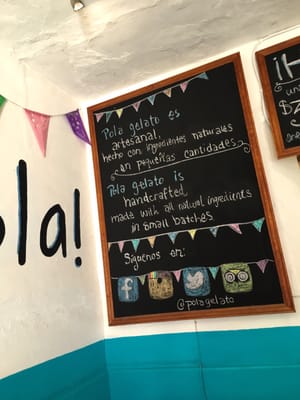 ola!
Pola gelato es
artesanal,
hecho con ingredientes naturales
en pequeñas cantidades
Pola gelato is
handcrafted,
made with all natural ingredients
in small batches
Síguenos en:
f
@polagelato
¡H